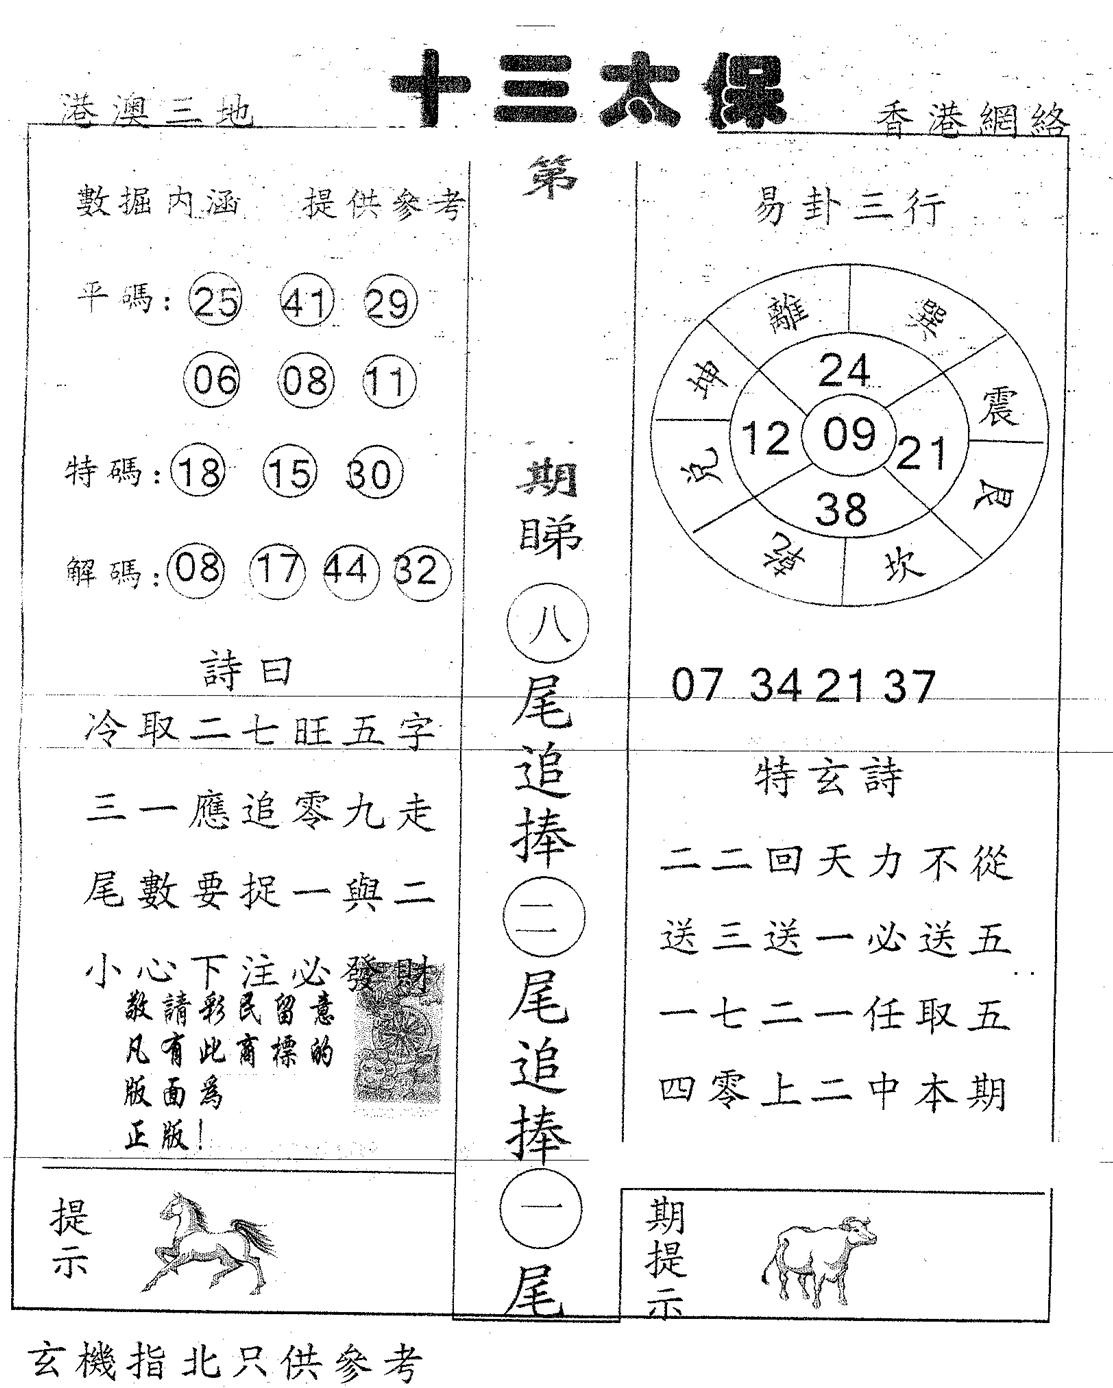 十三太保
港澳三地
香港網絡
數掘內涵 提供參考
平碼: 25 41 29
06 08 11
特碼: 18 15 30
解碼: 08 17 44 32
詩曰
冷取二七旺五字
三一應追零九走
尾數要捉一與二
小心下注必發財
敬請彩民留意
凡有此商標的
版面為
正版!
提示
第
期
睇
八
尾
追
捧
二
尾
追
捧
一
尾
易卦三行
離 巽
坤 震
兌 艮
乾 坎
24
12 09 21
38
07 34 21 37
特玄詩
二二回天力不從
送三送一必送五
一七二一任取五
四零上二中本期
期提示
玄機指北只供參考